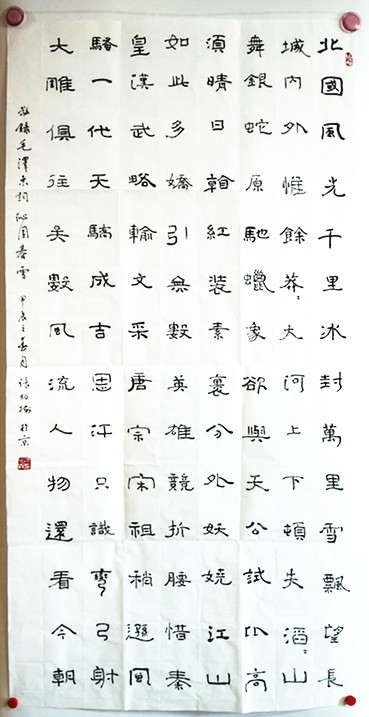 北國風光千里冰封萬里雪飄望長
城内外惟餘莽〻大河上下頓失滔〻山
舞銀蛇原馳蠟象欲與天公試比高
須晴日看紅装素裹分外妖嬈江山
如此多嬌引無數英雄競折腰惜秦
皇漢武略輸文采唐宗宋祖稍遜風
騷一代天驕成吉思汗只識彎弓射
大雕俱往矣數風流人物還看今朝
敬錄毛澤東詞沁園春雪 甲辰之 月 於京